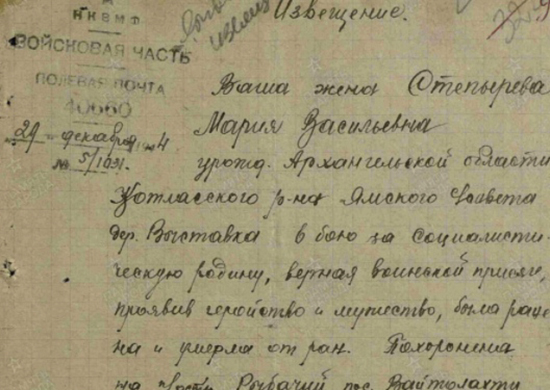 Извещение.
НКВМФ
ВОЙСКОВАЯ ЧАСТЬ
ПОЛЕВАЯ ПОЧТА
40660
29 декабря 194
№ 5/1031.
Ваша жена Степырева
Мария Васильевна
урожд. Архангельской области
Котласского р-на Ямского с/совета
дер. Выставка в бою за социалисти-
ческую родину, верная воинской присяге,
проявив геройство и мужество, была ране-
на и умерла от ран. Похоронена
Рыбачий пос. Вайтолахти